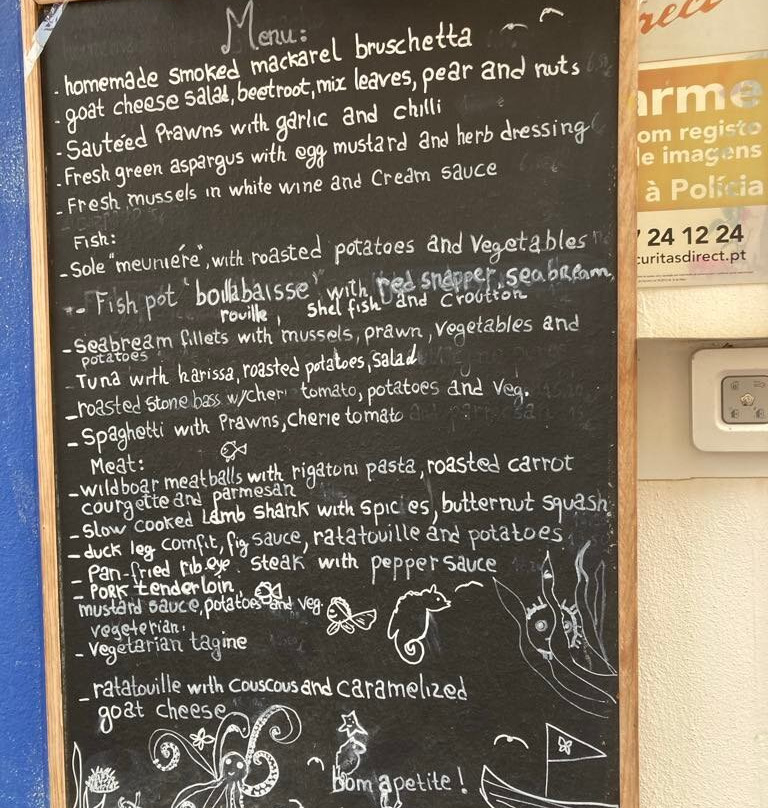 Menu:
- homemade smoked mackarel bruschetta
- goat cheese salad, beetroot, mix leaves, pear and nuts
- Sauteéd Prawns with garlic and chilli
- Fresh green aspargus with egg mustard and herb dressing
- Fresh mussels in white wine and Cream sauce
Fish:
- Sole "meuniére", with roasted potatoes and Vegetables
- Fish pot "boillabaisse" with red snapper, seabream,
rouille, Shel fish and Croutton
- Seabream fillets with mussels, prawn, vegetables and
potatoes
- Tuna with harissa, roasted potatoes, salad
- roasted Stone bass w/cheri tomato, potatoes and Veg.
- Spaghetti with Prawns, cherie tomato
Meat:
- wildboar meatballs with rigatoni pasta, roasted carrot
courgette and parmesan
- Slow cooked Lamb shank with spicies, butternut squash
- duck leg comfit, fig sauce, ratatouille and potatoes
- Pan-fried rib eye steak with pepper sauce
- Pork tenderloin,
mustard sauce, potatoes and veg.
vegeterian:
- Vegetarian tagine
- ratatouille with Couscous and caramelized
goat cheese
Bom apetite!
arme
om registo
e imagens
à Polícia
7 24 12 24
curitasdirect.pt